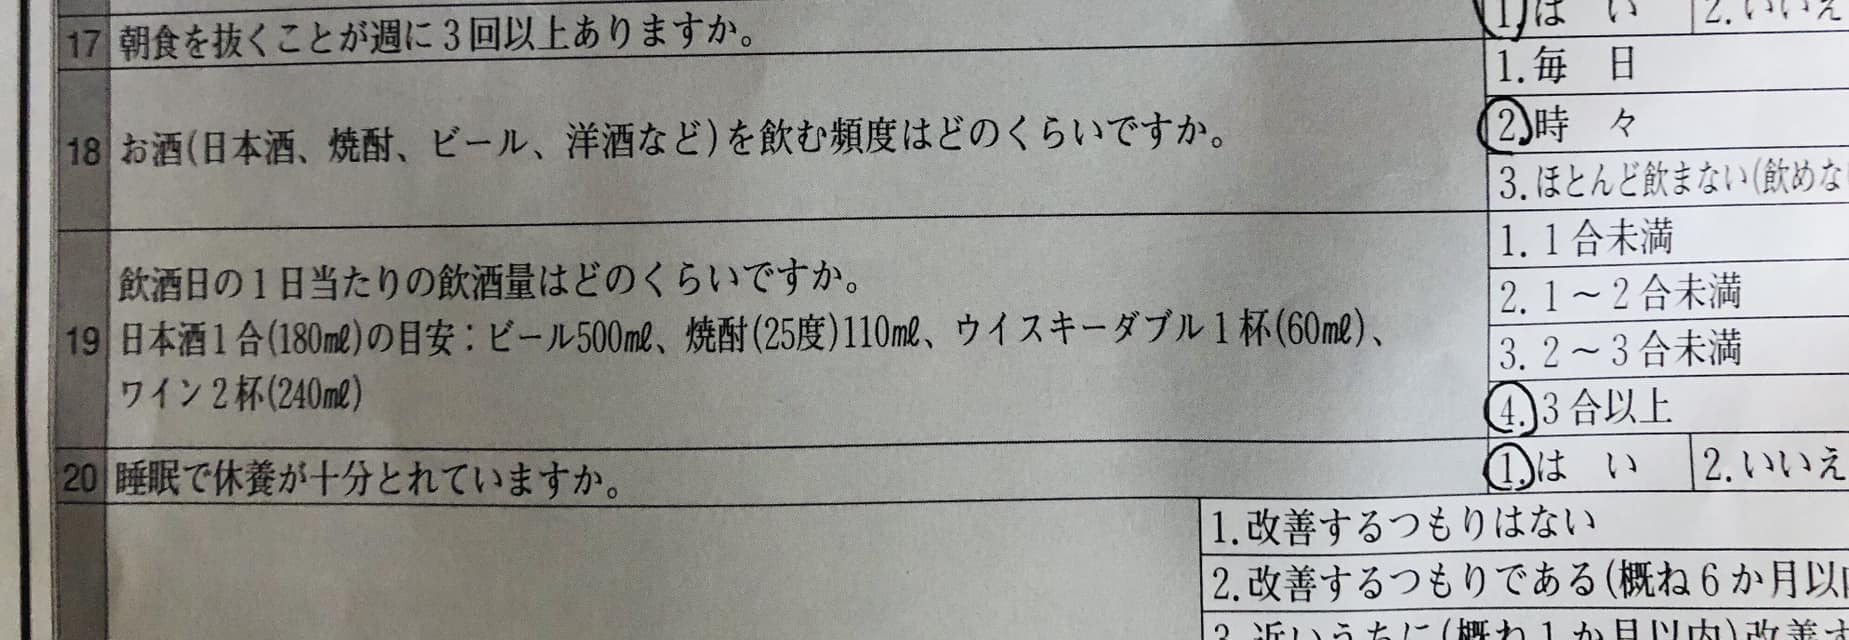 17 朝食を抜くことが週に3回以上ありますか。 1. は い 2. いいえ
18 お酒(日本酒、焼酎、ビール、洋酒など)を飲む頻度はどのくらいですか。
1. 毎 日
2. 時 々
3. ほとんど飲まない(飲めな
19 飲酒日の1日当たりの飲酒量はどのくらいですか。
日本酒1合(180㎖)の目安：ビール500㎖、焼酎(25度)110㎖、ウイスキーダブル1杯(60㎖)、
ワイン2杯(240㎖)
1. 1合未満
2. 1～2合未満
3. 2～3合未満
4. 3合以上
20 睡眠で休養が十分とれていますか。 1. は い 2. いいえ
1. 改善するつもりはない
2. 改善するつもりである(概ね6か月以内
3. 近いうちに(概ね1か月以内)改善す